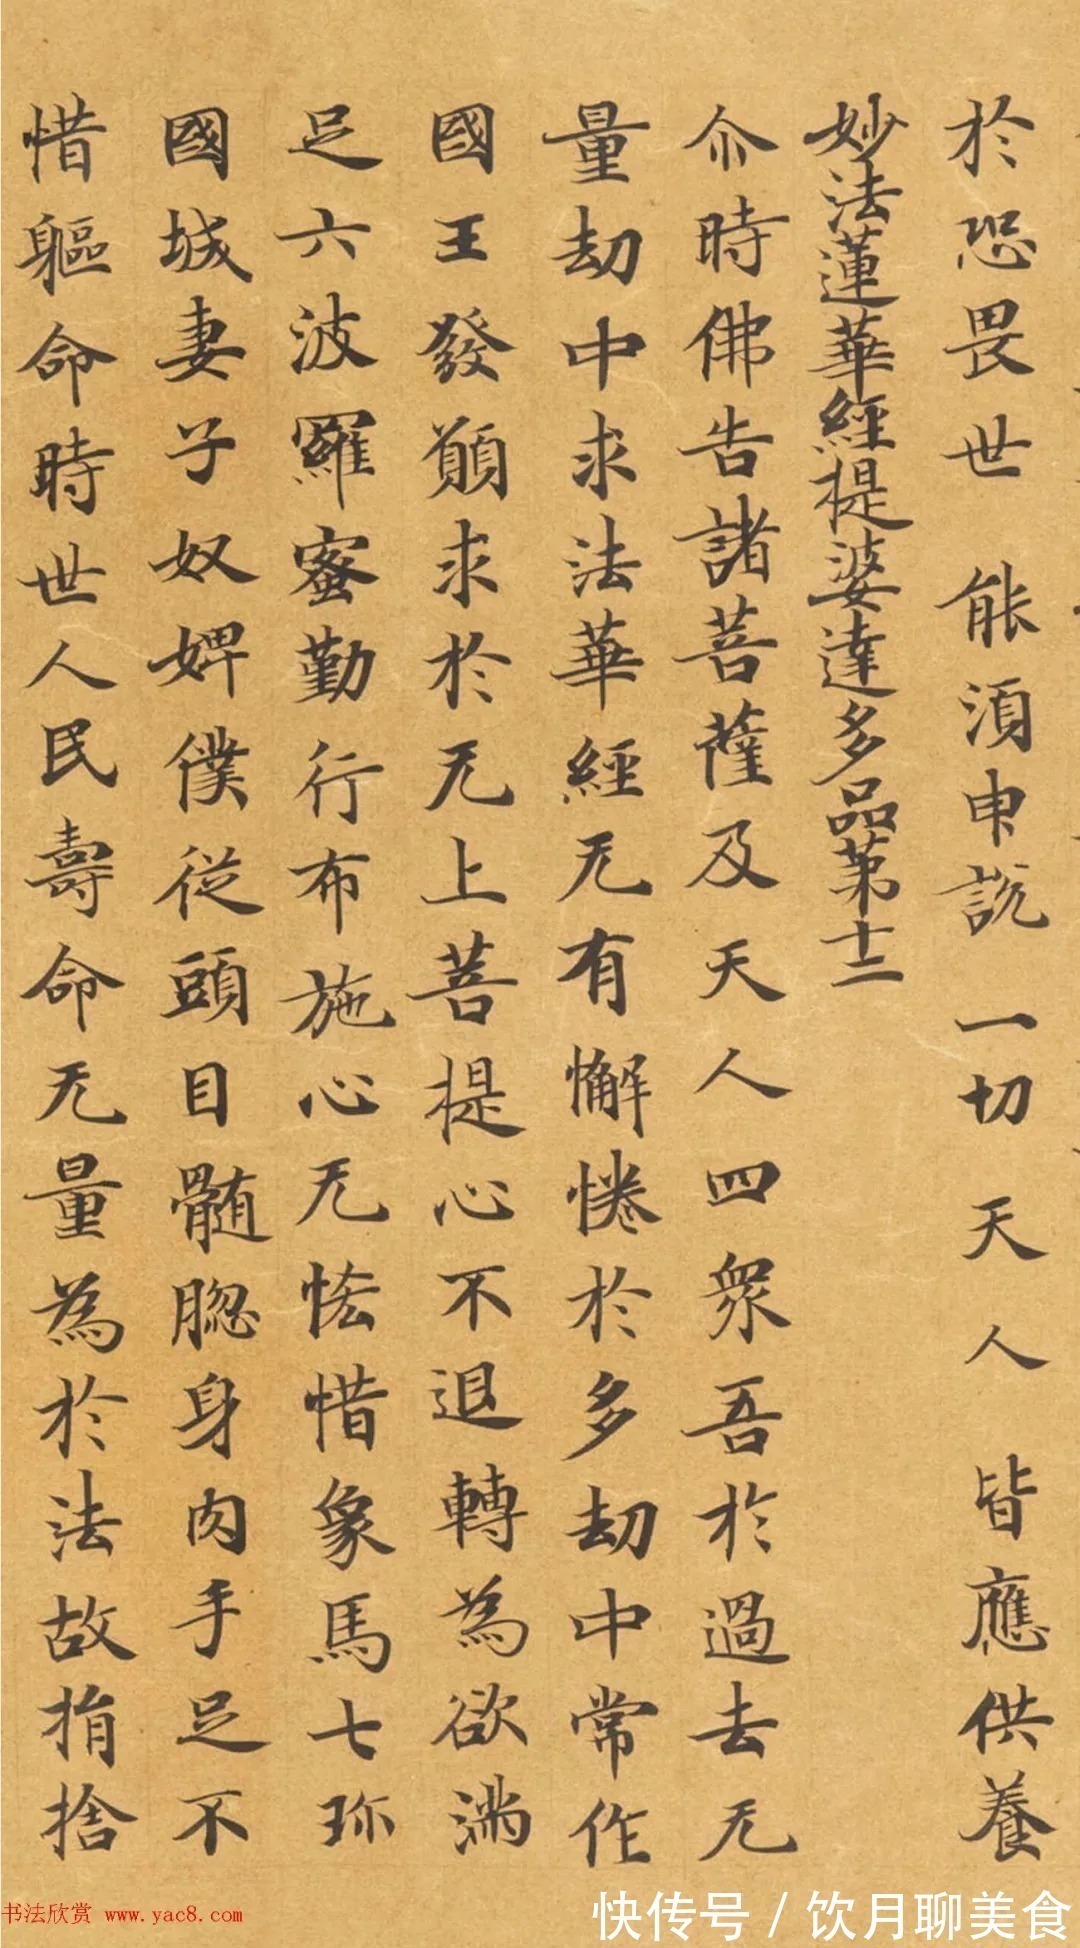 於恐畏世 能須申說 一切天人 皆應供養
妙法蓮華經提婆達多品第十二
尒時佛告諸菩薩及天人四衆吾於過去无
量劫中求法華經无有懈惓於多劫中常作
國王發願求於无上菩提心不退轉為欲滿
足六波羅蜜勤行布施心无悋惜象馬七珎
國城妻子奴婢僕從頭目髓𦛁身肉手足不
惜軀命時世人民壽命无量為於法故捐捨
书法欣赏 www.yac8.com
快传号 / 饮月聊美食